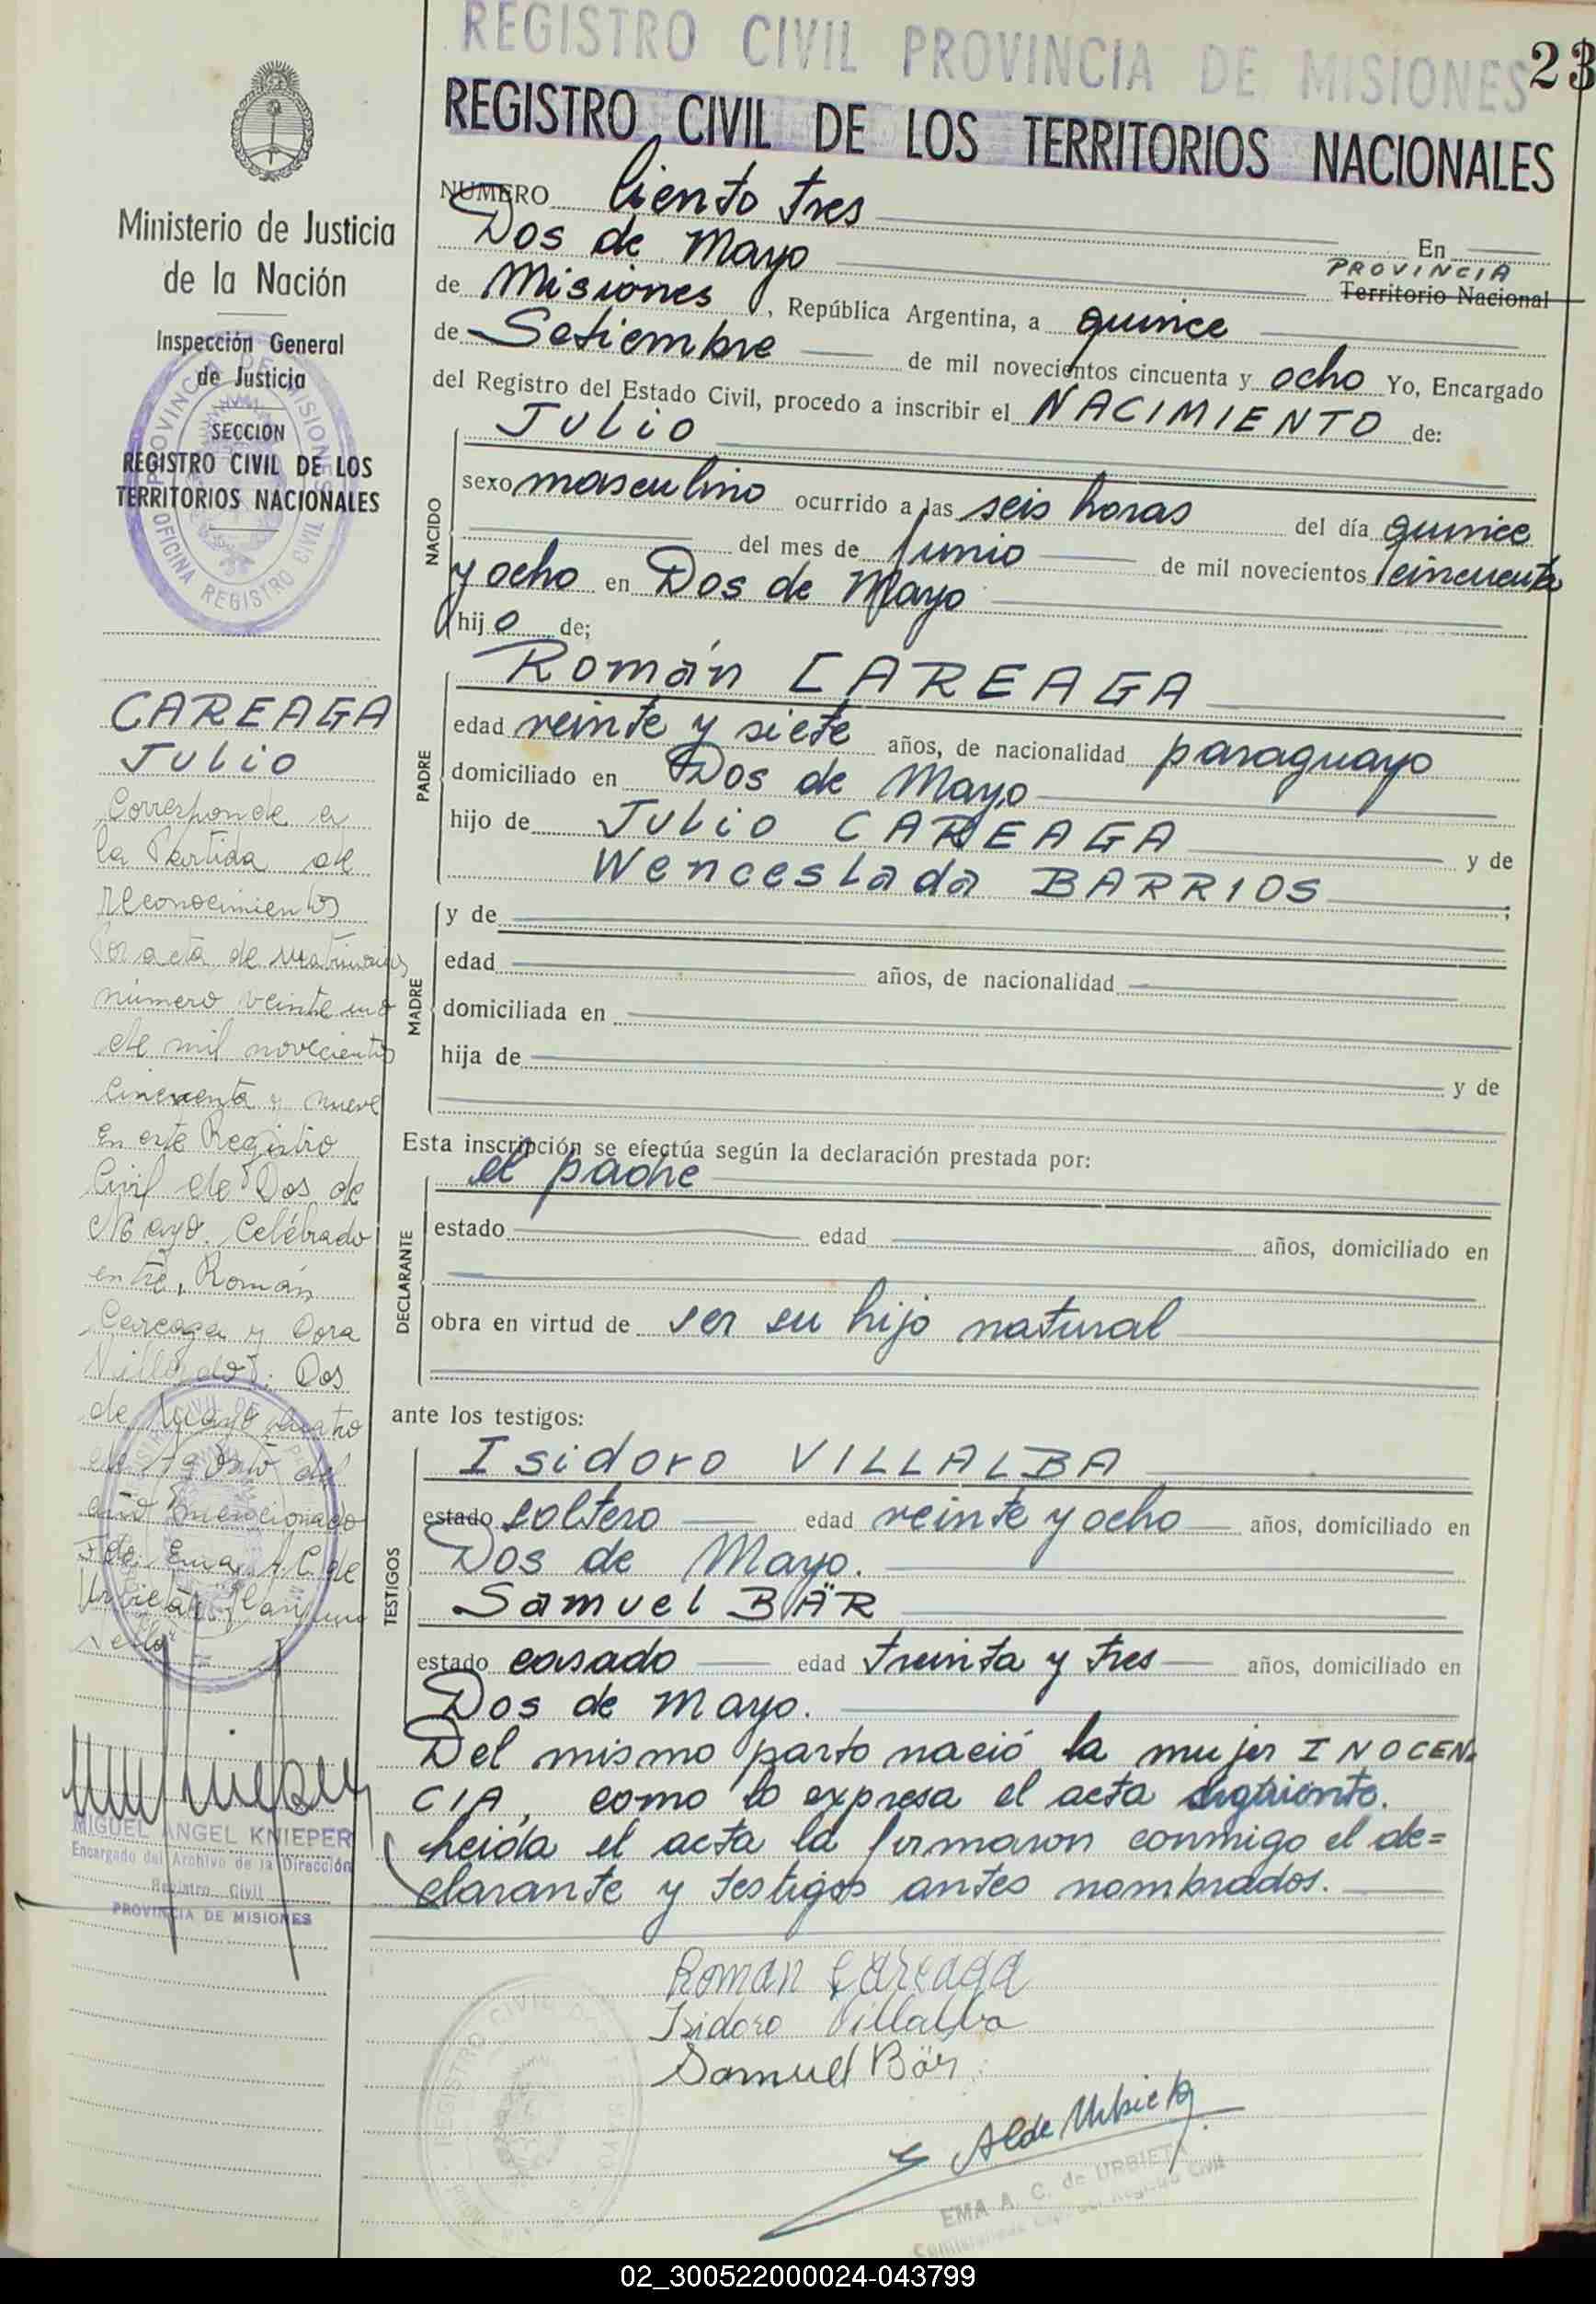 REGISTRO CIVIL PROVINCIA DE MISIONES
23
REGISTRO CIVIL DE LOS TERRITORIOS NACIONALES
Ministerio de Justicia
de la Nación
Inspección General
de Justicia
SECCION
REGISTRO CIVIL DE LOS
TERRITORIOS NACIONALES
PROVINCIA DE MISIONES
OFICINA REGISTRO CIVIL
CAREAGA
Julio
Corresponde a
la Partida de
reconocimientos
Por acta de matrimonio
número veinte uno
de mil novecientos
Cincuenta y nueve
en este Registro
Civil de Dos de
Mayo. Celébrado
entre, Román
Careaga y Dora
Dos
de Mayo cuatro
del
año mencionado
Fdo. Ema A. C. de
Urbieta
MIGUEL ANGEL KNIEPER
Encargado del Archivo de la Dirección
Registro Civil
PROVINCIA DE MISIONES
NUMERO Ciento tres En
Dos de Mayo PROVINCIA
Territorio Nacional
de Misiones, República Argentina, a quince
de Setiembre de mil novecientos cincuenta y ocho Yo, Encargado
del Registro del Estado Civil, procedo a inscribir el NACIMIENTO de:
NACIDO
Julio
sexo masculino ocurrido a las seis horas del día quince
del mes de Junio de mil novecientos cincuenta
y ocho en Dos de Mayo
hijo de;
PADRE
Román CAREAGA
edad veinte y siete años, de nacionalidad paraguayo
domiciliado en Dos de Mayo
hijo de Julio CAREAGA y de
Wenceslada BARRIOS ;
MADRE
y de
edad años, de nacionalidad
domiciliada en
hija de y de
Esta inscripción se efectúa según la declaración prestada por:
DECLARANTE
el padre
estado edad años, domiciliado en
obra en virtud de ser su hijo natural
ante los testigos:
TESTIGOS
Isidoro VILLALBA
estado soltero edad veinte y ocho años, domiciliado en
Dos de Mayo.
Samuel BÄR
estado casado edad treinta y tres años, domiciliado en
Dos de Mayo.
Del mismo parto nació la mujer INOCEN-
CIA, como lo expresa el acta siguiente.
Leída el acta la firmaron conmigo el de=
clarante y testigos antes nombrados.
Roman Careaga
Isidoro Villalba
Samuel Bär
A C de Urbieta
EMA A. C. de URBIETA
02_300522000024-043799